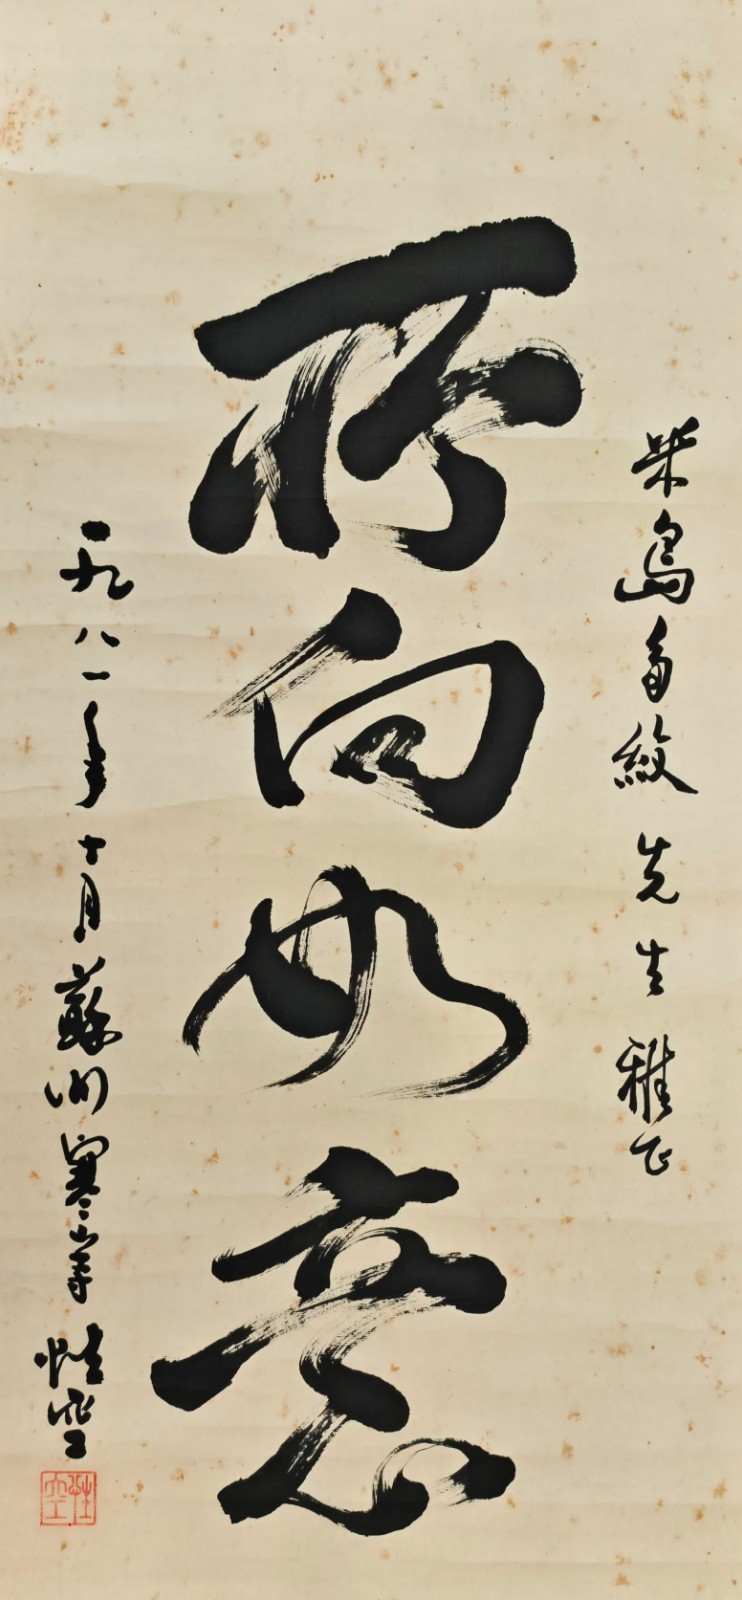 柴島多紋先生雅正
所向如意
一九八一年十月蘇州寒山寺性空
性空